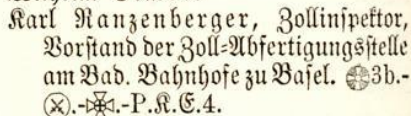 Karl Ranzenberger, Zollinspektor,
Vorstand der Zoll-Abfertigungsstelle
am Bad. Bahnhofe zu Basel. 3b.-
.-.-P.K.E.4.